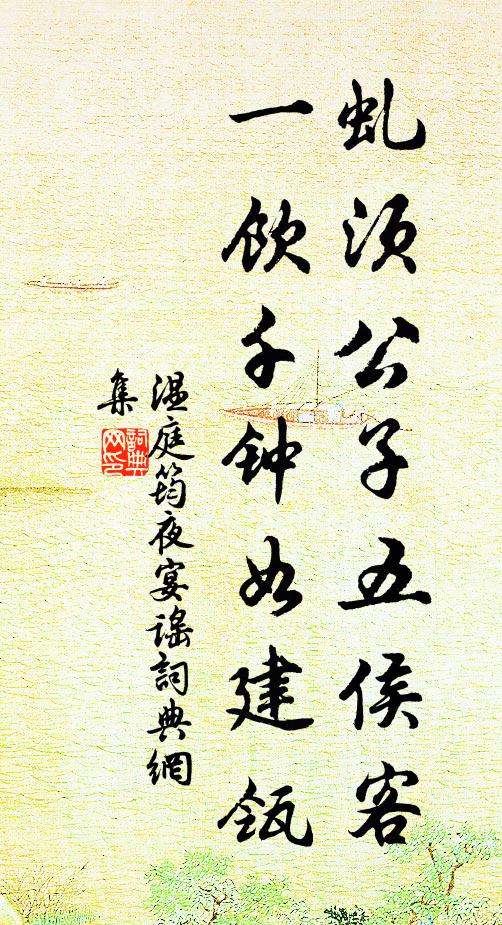 虬须公子五侯客
一饮千钟如建瓴
温庭筠夜宴谣词典網
集
詞典
网印